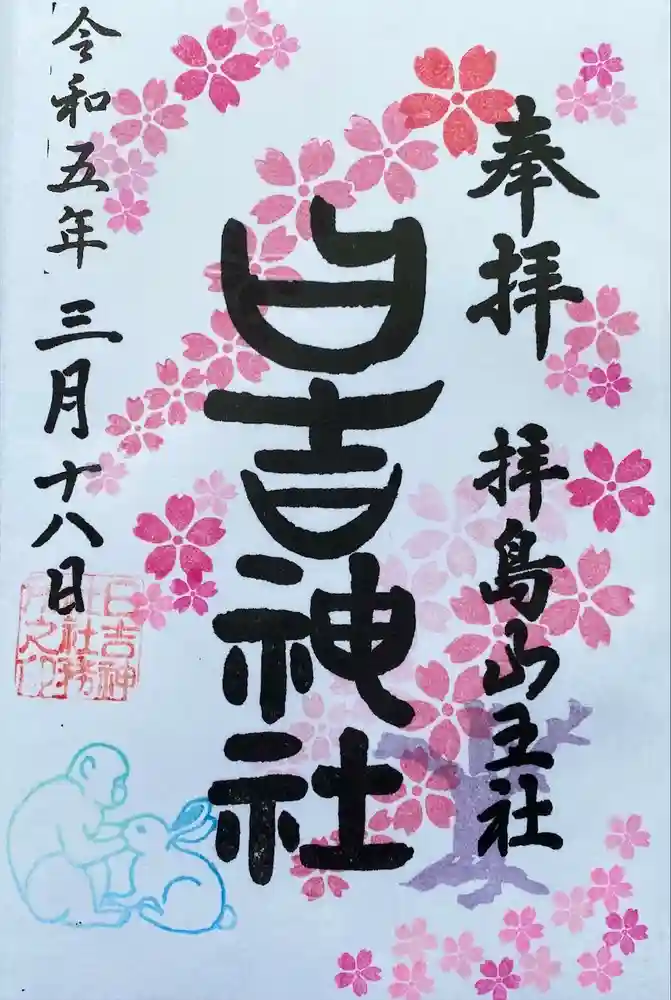 奉拝
拝島山王社
日吉神社
令和五年三月十八日
日吉神
社務
之印